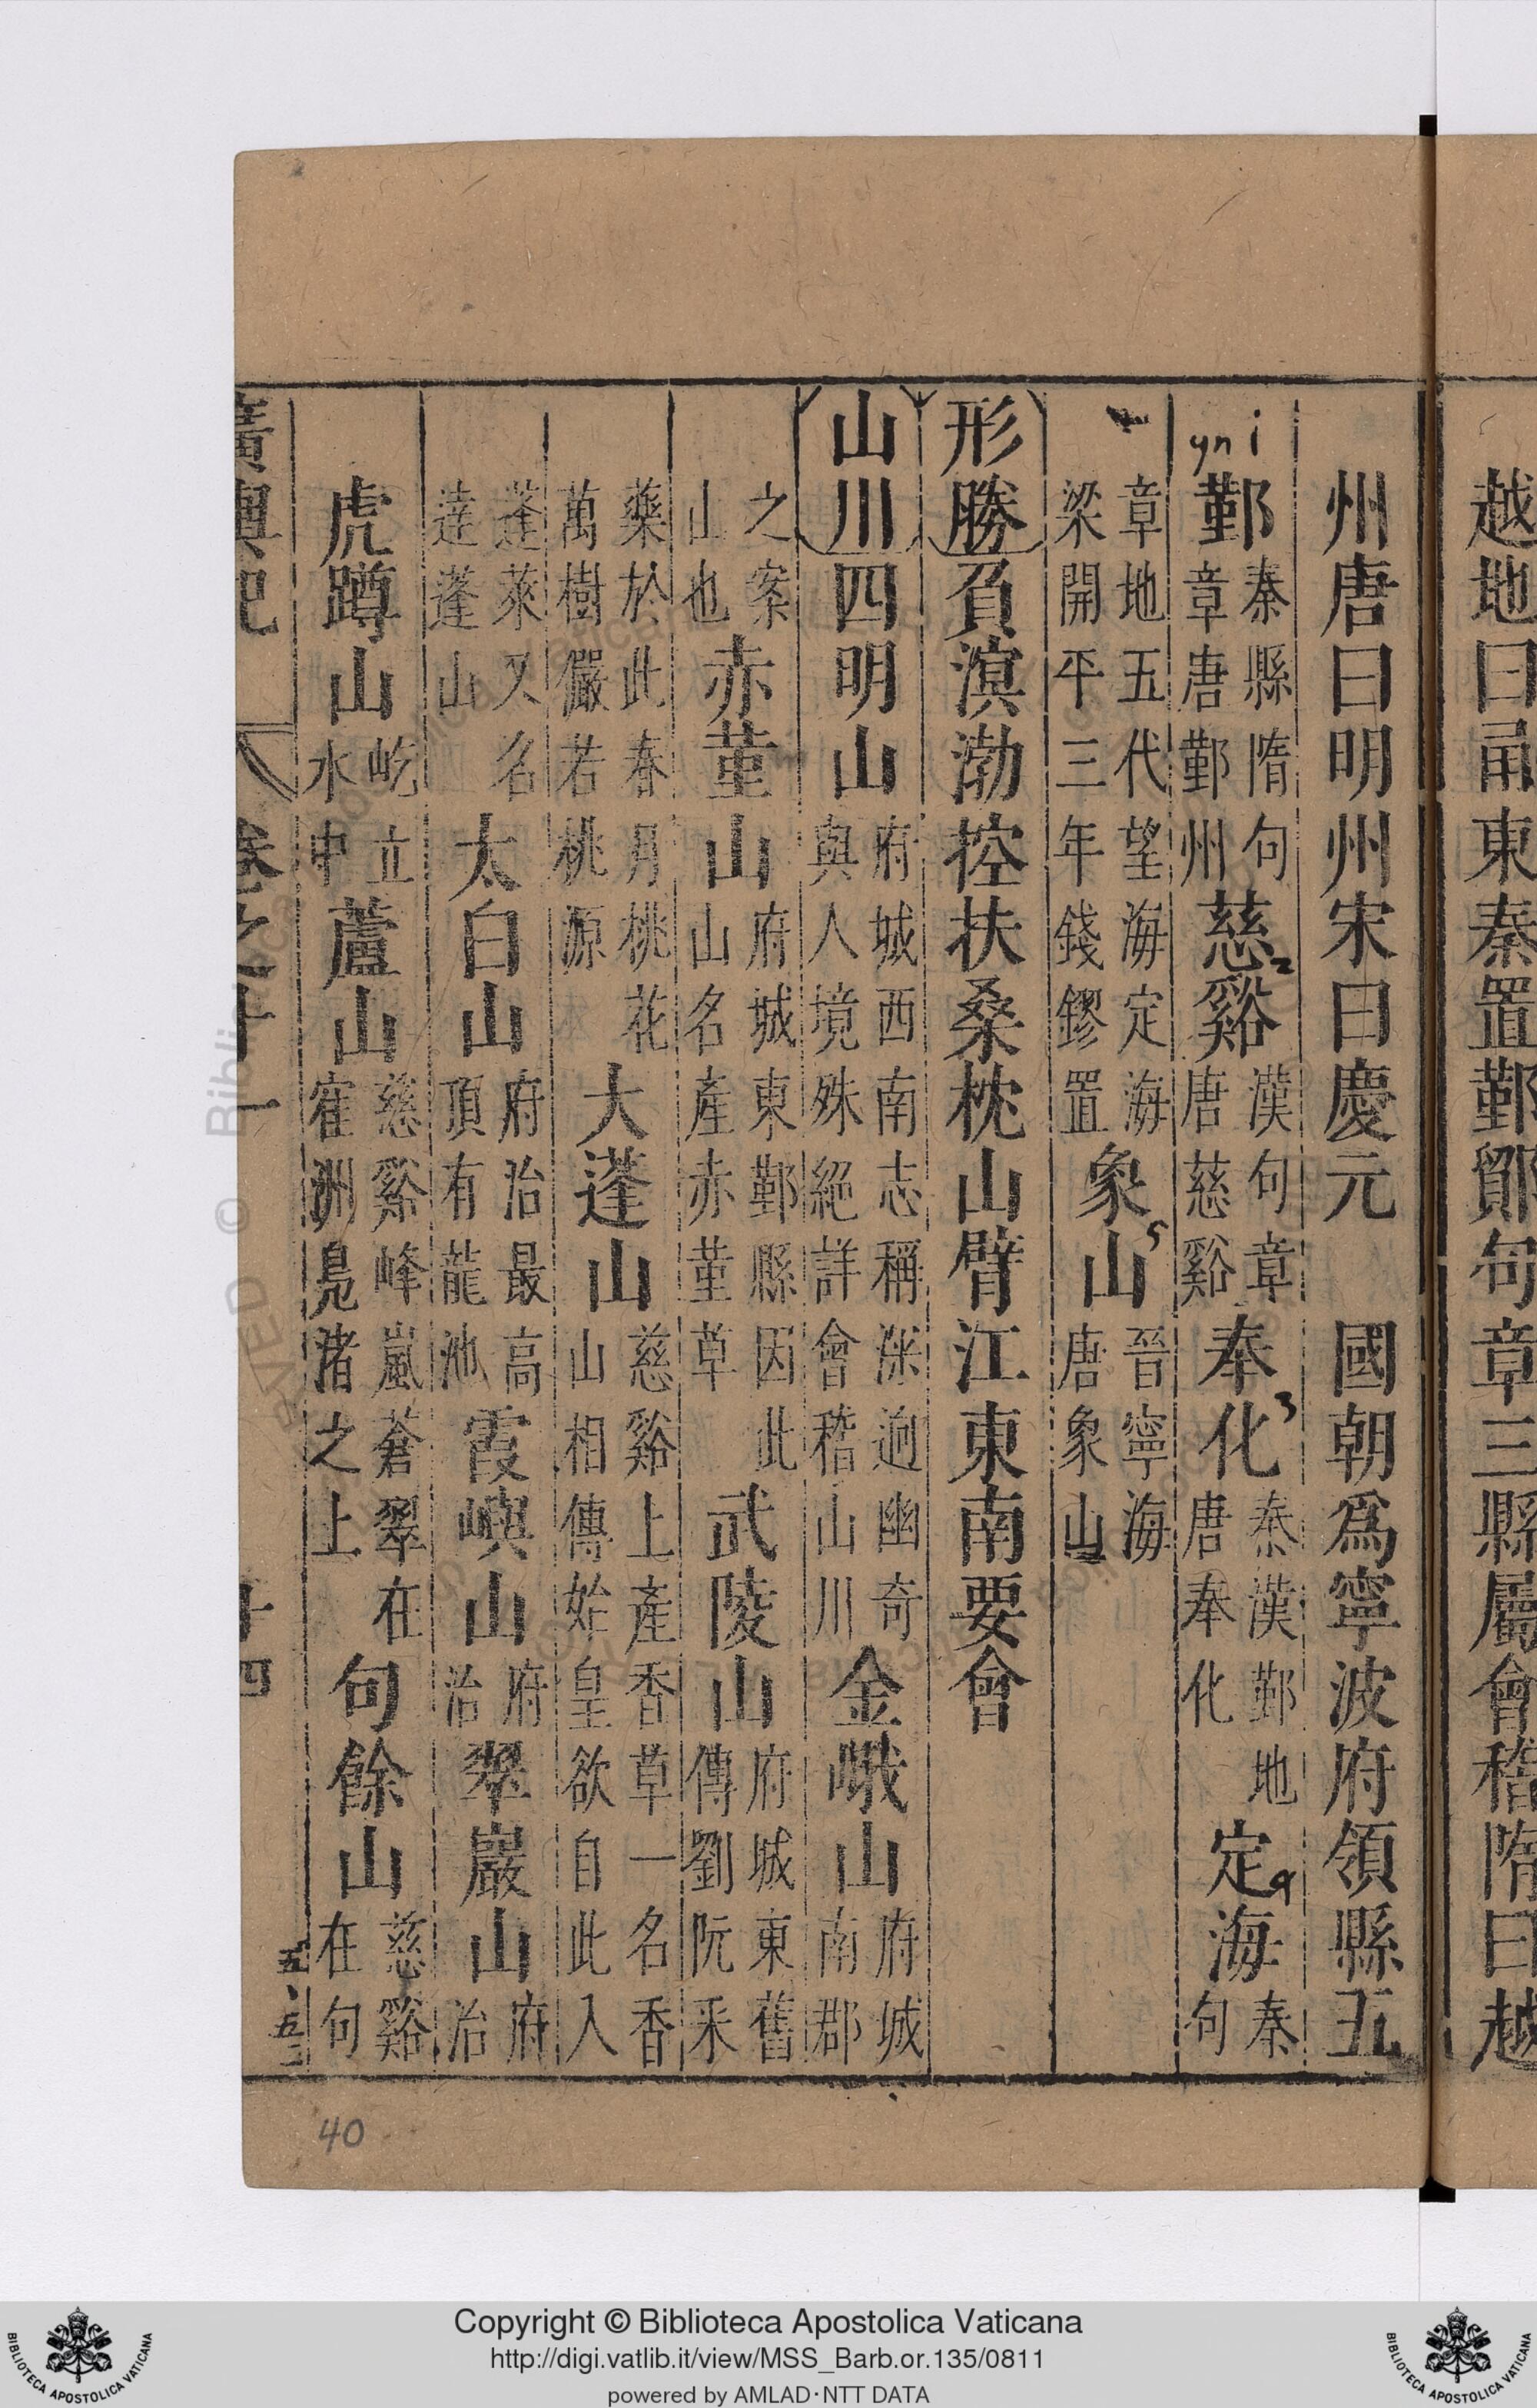 越地曰甬東秦置鄞鄮句章三縣屬會稽隋曰越
州唐曰明州宋曰慶元 國朝爲寧波府領縣五
鄞秦縣隋句章唐鄞州慈谿漢句章唐慈谿奉化秦漢鄞地唐奉化定海秦句
章地五代望海定海梁開平三年錢鏐置象山晉寧海唐象山
形勝負溟渤控扶桑枕山臂江東南要會
山川四明山府城西南志稱深逈幽奇與人境殊絕詳會稽山川金峨山府城南郡
之案山也赤菫山府城東鄞縣因此山名產赤菫草武陵山府城東舊傳劉阮采
藥於此春月桃花萬樹儼若桃源大蓬山慈谿上產香草一名香山相傳始皇欲自此入
蓬萊又名達蓬山太白山府治最高頂有龍池霞嶼山府治翠巖山府治
虎蹲山屹立水中蘆山慈谿峰嵐蒼翠在寉洲鳧渚之上句餘山慈谿在句
廣輿記 卷之十一 十四
yn i
2
3
9
5
40
© Biblioteca Apostolica Vaticana
Copyright © Biblioteca Apostolica Vaticana
http://digi.vatlib.it/view/MSS_Barb.or.135/0811
powered by AMLAD·NTT DATA
BIBLIOTECA APOSTOLICA VATICANA
BIBLIOTECA APOSTOLICA VATICANA